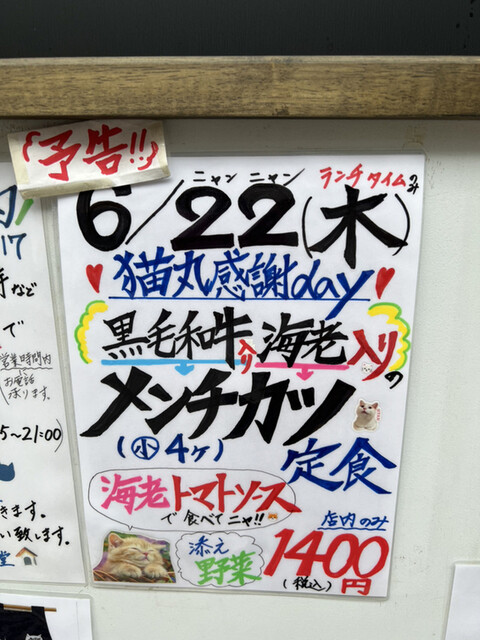 予告!!
ニャン ニャン
ランチタイムのみ
6/22(木)
猫丸感謝day
黒毛和牛入り海老入りの
メンチカツ
(小4ケ)
定食
海老トマトソース
で食べてニャ!!
店内のみ
添え
野菜
1400円
(税込)
17
など
で
営業時間内
お電話
承ります。
5〜21:00)
きます。
い致します。
堂